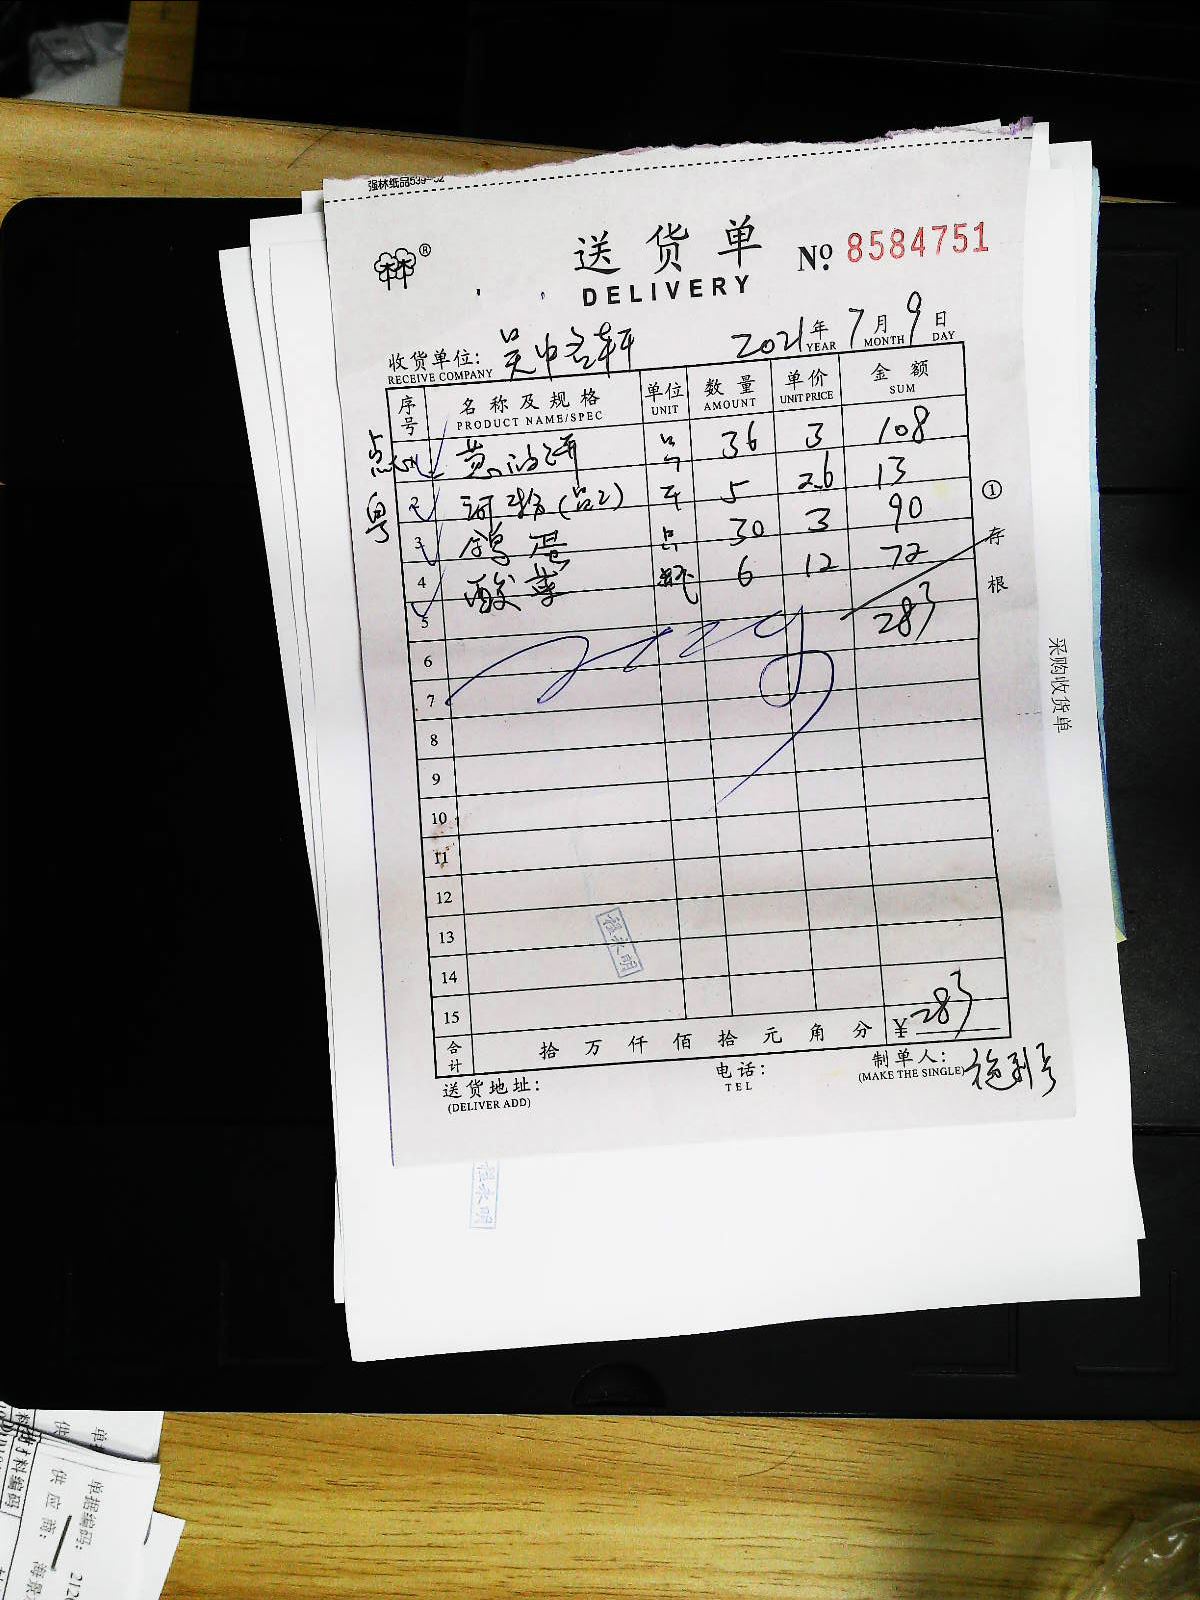 强林纸品539-32
林林®
送货单 № 8584751
DELIVERY
收货单位: 吴中名轩 2021年7月9日
RECEIVE COMPANY YEAR MONTH DAY
序号 名称及规格 单位 数量 单价 金额
PRODUCT NAME/SPEC UNIT AMOUNT UNIT PRICE SUM
点心 葱油饼 36 3 108
粤 2 河粉 斤 5 2.6 13
3 鸽蛋 只 30 3 90
4 酸菜 瓶 6 12 72
5 283
6
7
8
9
10
11
12
13
14
15
合计 拾 万 仟 佰 拾 元 角 分 ¥283
送货地址: 电话: 制单人:
(DELIVER ADD) TEL (MAKE THE SINGLE)
① 存根
采购收货单
程永明
程永明
材料编码
单据编码: 212
供应商: 海